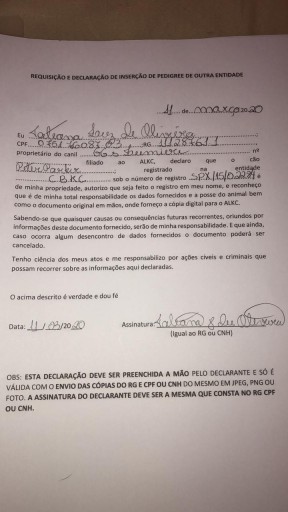 REQUISIÇÃO E DECLARAÇÃO DE INSERÇÃO DE PEDIGREE DE OUTRA ENTIDADE
11 de março 20 20
Eu De Oliveira
CPF RG
proprietário do canil nº
filiado ao ALKC, declaro que o cão
Peter Parker, registrado na entidade
CBKC sob o número de registro é
de minha propriedade, autorizo que seja feito o registro em meu nome, e reconheço
que é de minha total responsabilidade os dados fornecidos e a posse do animal bem
como o documento original em mãos, onde forneço a cópia digital para o ALKC.
Sabendo-se que quaisquer causas ou consequências futuras recorrentes, oriundos por
informações deste documento fornecido, serão de minha responsabilidade. E que ainda,
caso ocorra algum desencontro de dados fornecidos o documento poderá ser
cancelado.
Tenho ciência dos meus atos e me responsabilizo por ações cíveis e criminais que
possam recorrer sobre as informações aqui declaradas.
O acima descrito é verdade e dou fé
Data: 11/03/20 20 Assinatura:
(Igual ao RG ou CNH)
OBS: ESTA DECLARAÇÃO DEVE SER PREENCHIDA A MÃO PELO DECLARANTE E SÓ É
VÁLIDA COM O ENVIO DAS CÓPIAS DO RG E CPF OU CNH DO MESMO EM JPEG, PNG OU
FOTO. A ASSINATURA DO DECLARANTE DEVE SER A MESMA QUE CONSTA NO RG CPF
OU CNH.